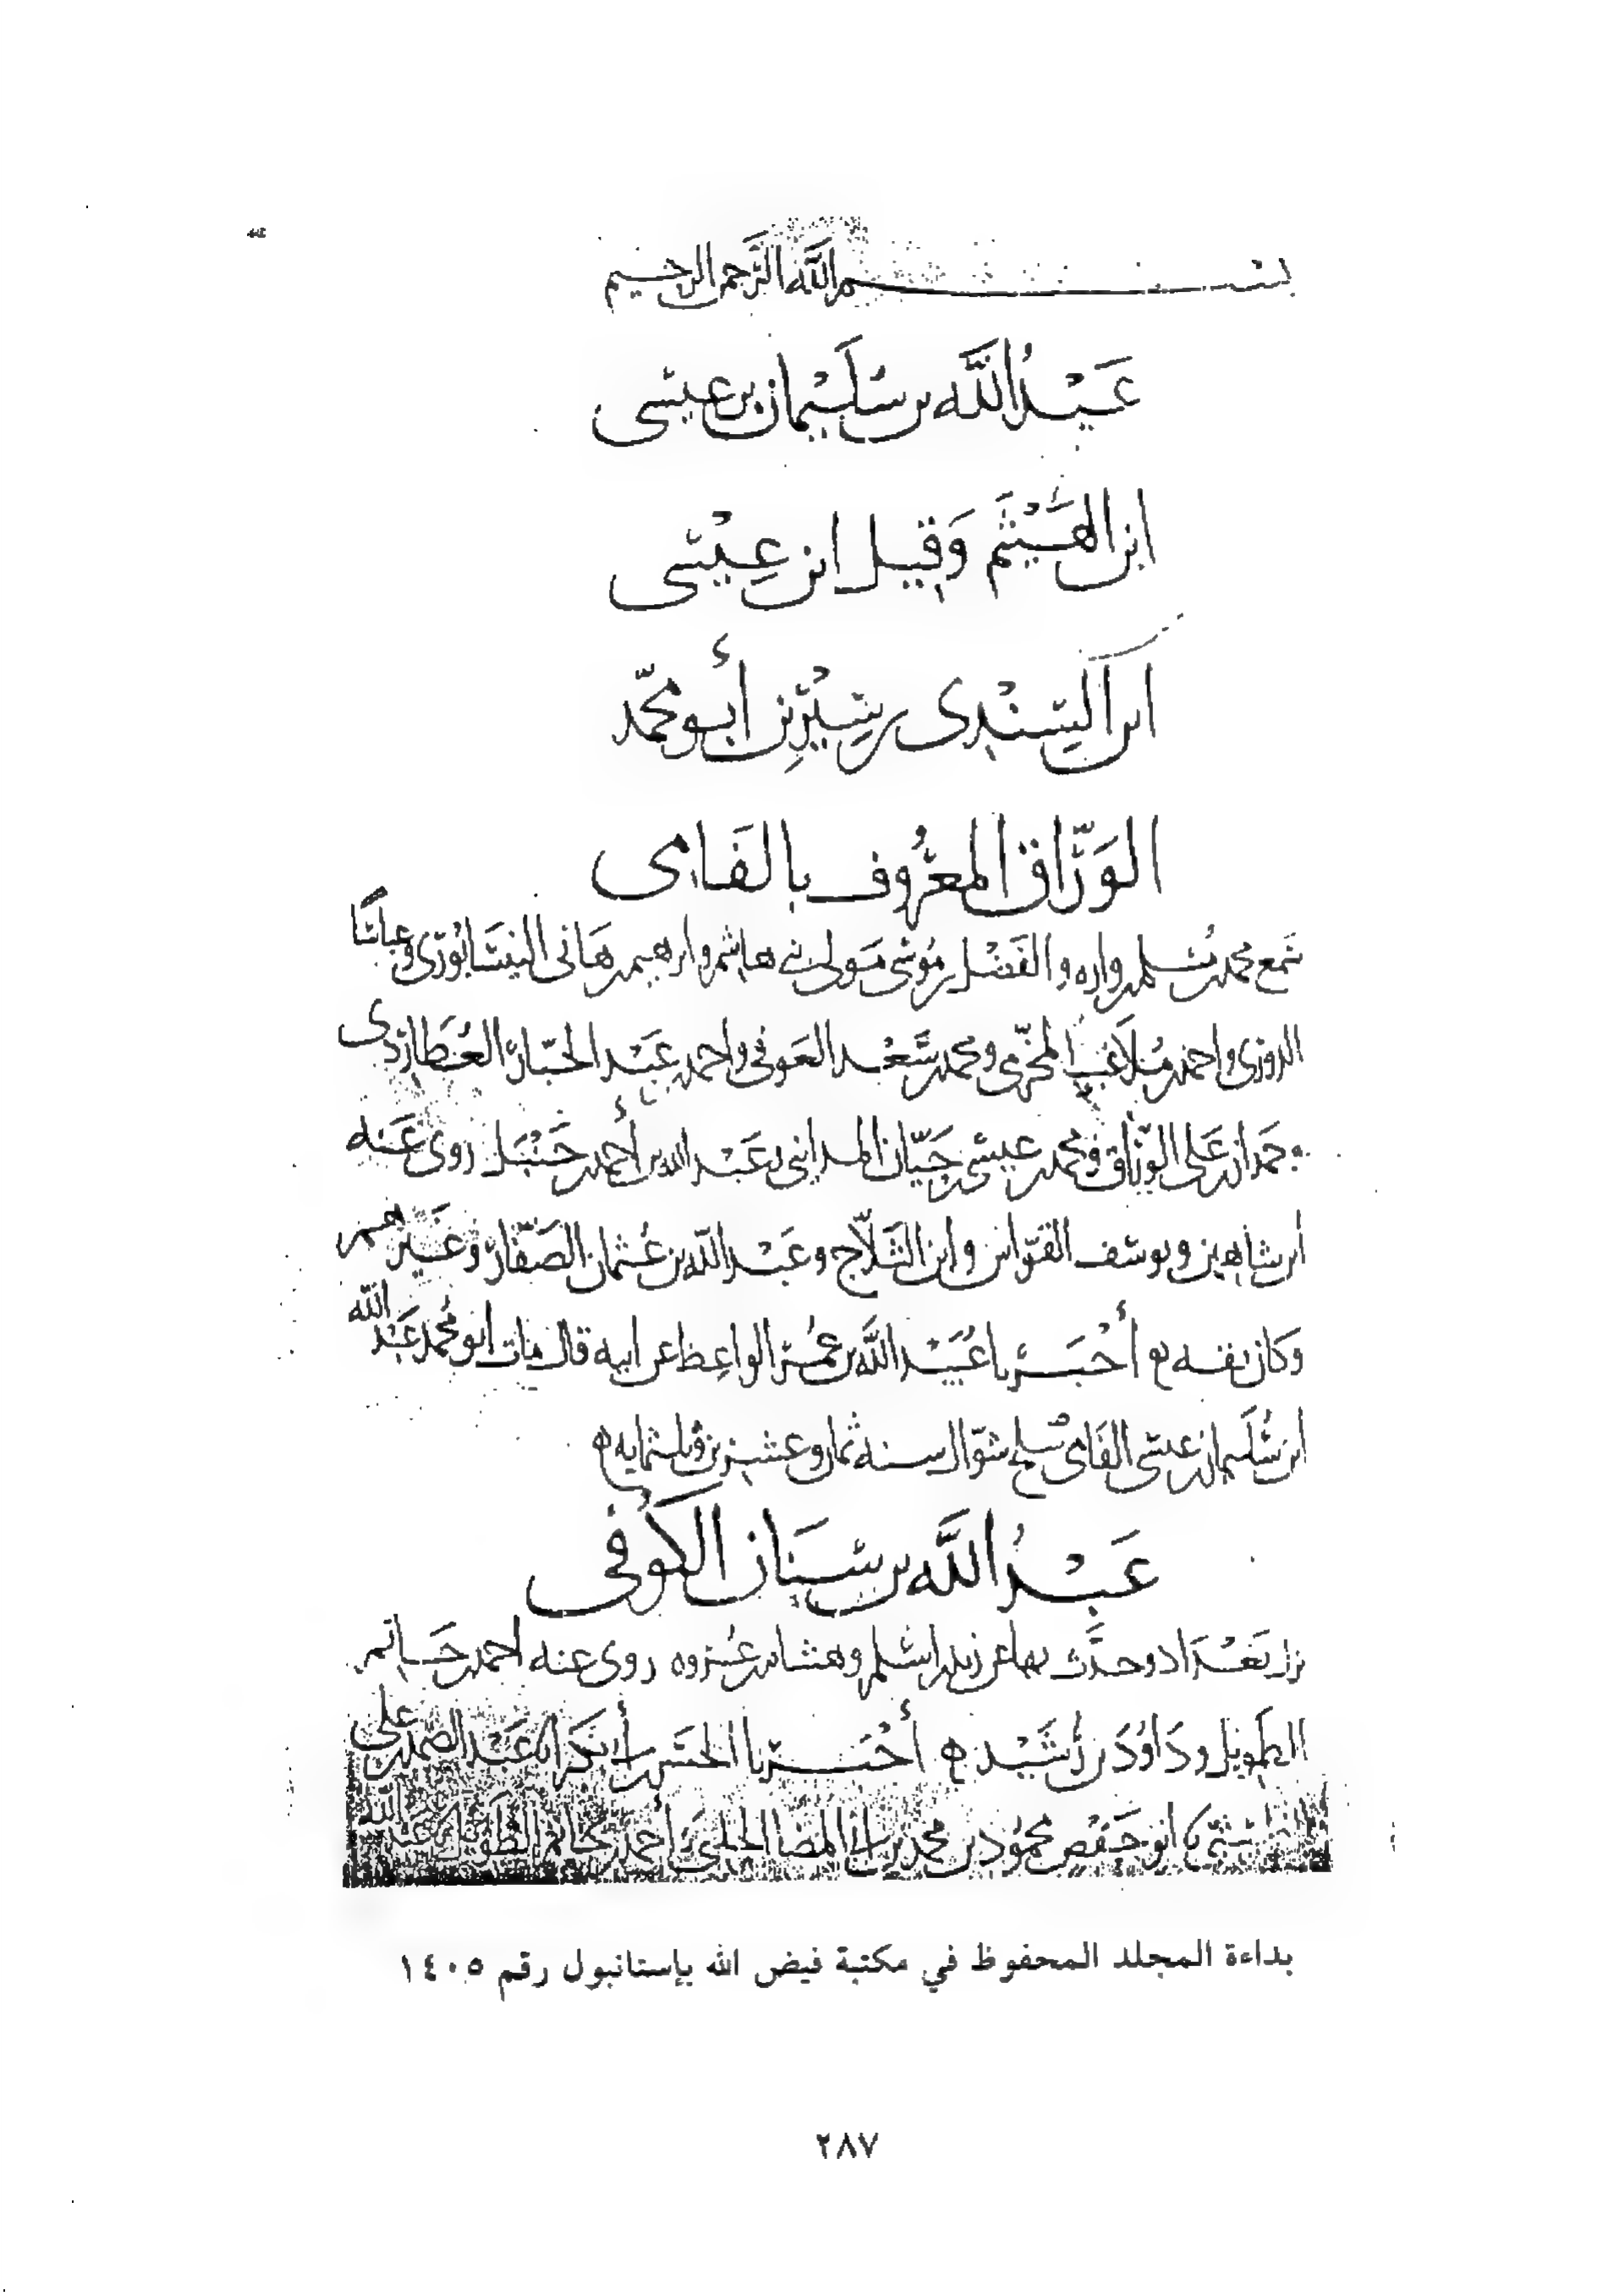 بسم الله الرحمن الرحيم
عَبْدُ اللَّه بن سُلَيْمان بن عيسى
ابن الهَيْثَم وَقيل ابن عِيْسَى
ابن السِّنْدِى بن سِيْرِين أبو محمّد
الوَرَّاق المعْرُوف بالفَامى
سَمع محمد بن مُسلم بن واره والفَضْل بن مُوسَى مَولى بنى هاشم وابرهيم بن هَانى النيسَابُورى وعباسًا
الدورى واحمد بن مُلَاعب المخَرّمى ومحمد بن سَعْد العَوفى واحمد بن عَبْد الجَبّار العُطَاردى
وحمدان بن عَلى الورّاق ومحمد بن عيسى بن حَيّان المداينى وعَبْد الله بن أحمد بن حَنْبَل روى عَنه
ابن شاهين ويوسف القوّاس وابن الثَلّاج وعَبْد اللّه بن عُثمان الصَفّار وغَيْرهم
وكان ثقه أخْبَرنا عُبَيْد اللَّه بن عُمر الواعِظ عن ابيه قال مات ابو محمد عَبْد الله
ابن سُلَيمان بن عيسى الفَامى سلخ شوّال سنه ثمان وعشرين وثلثمايه
عَبْدُ اللَّه بن سِنَان الكُوفى
نزل بَغْدَاد وحدَّث بها عن زيد بن اسلم وهشام بن عُروه روى عنه احمد بن حَاتم
الطَويل ودَاوُدَ بن رُشَيْد أخْبَرنا الحَسَن بن أبى بَكر انا عَبْد الصمد بن على
ابو حَفْص محمُود بن محمد بن أبى المضا الحلبى احمد بن حاتم الطويل عبد الله
بداءة المجلد المحفوظ في مكتبة فيض الله بإستانبول رقم ١٤٠٥
٢٨٧